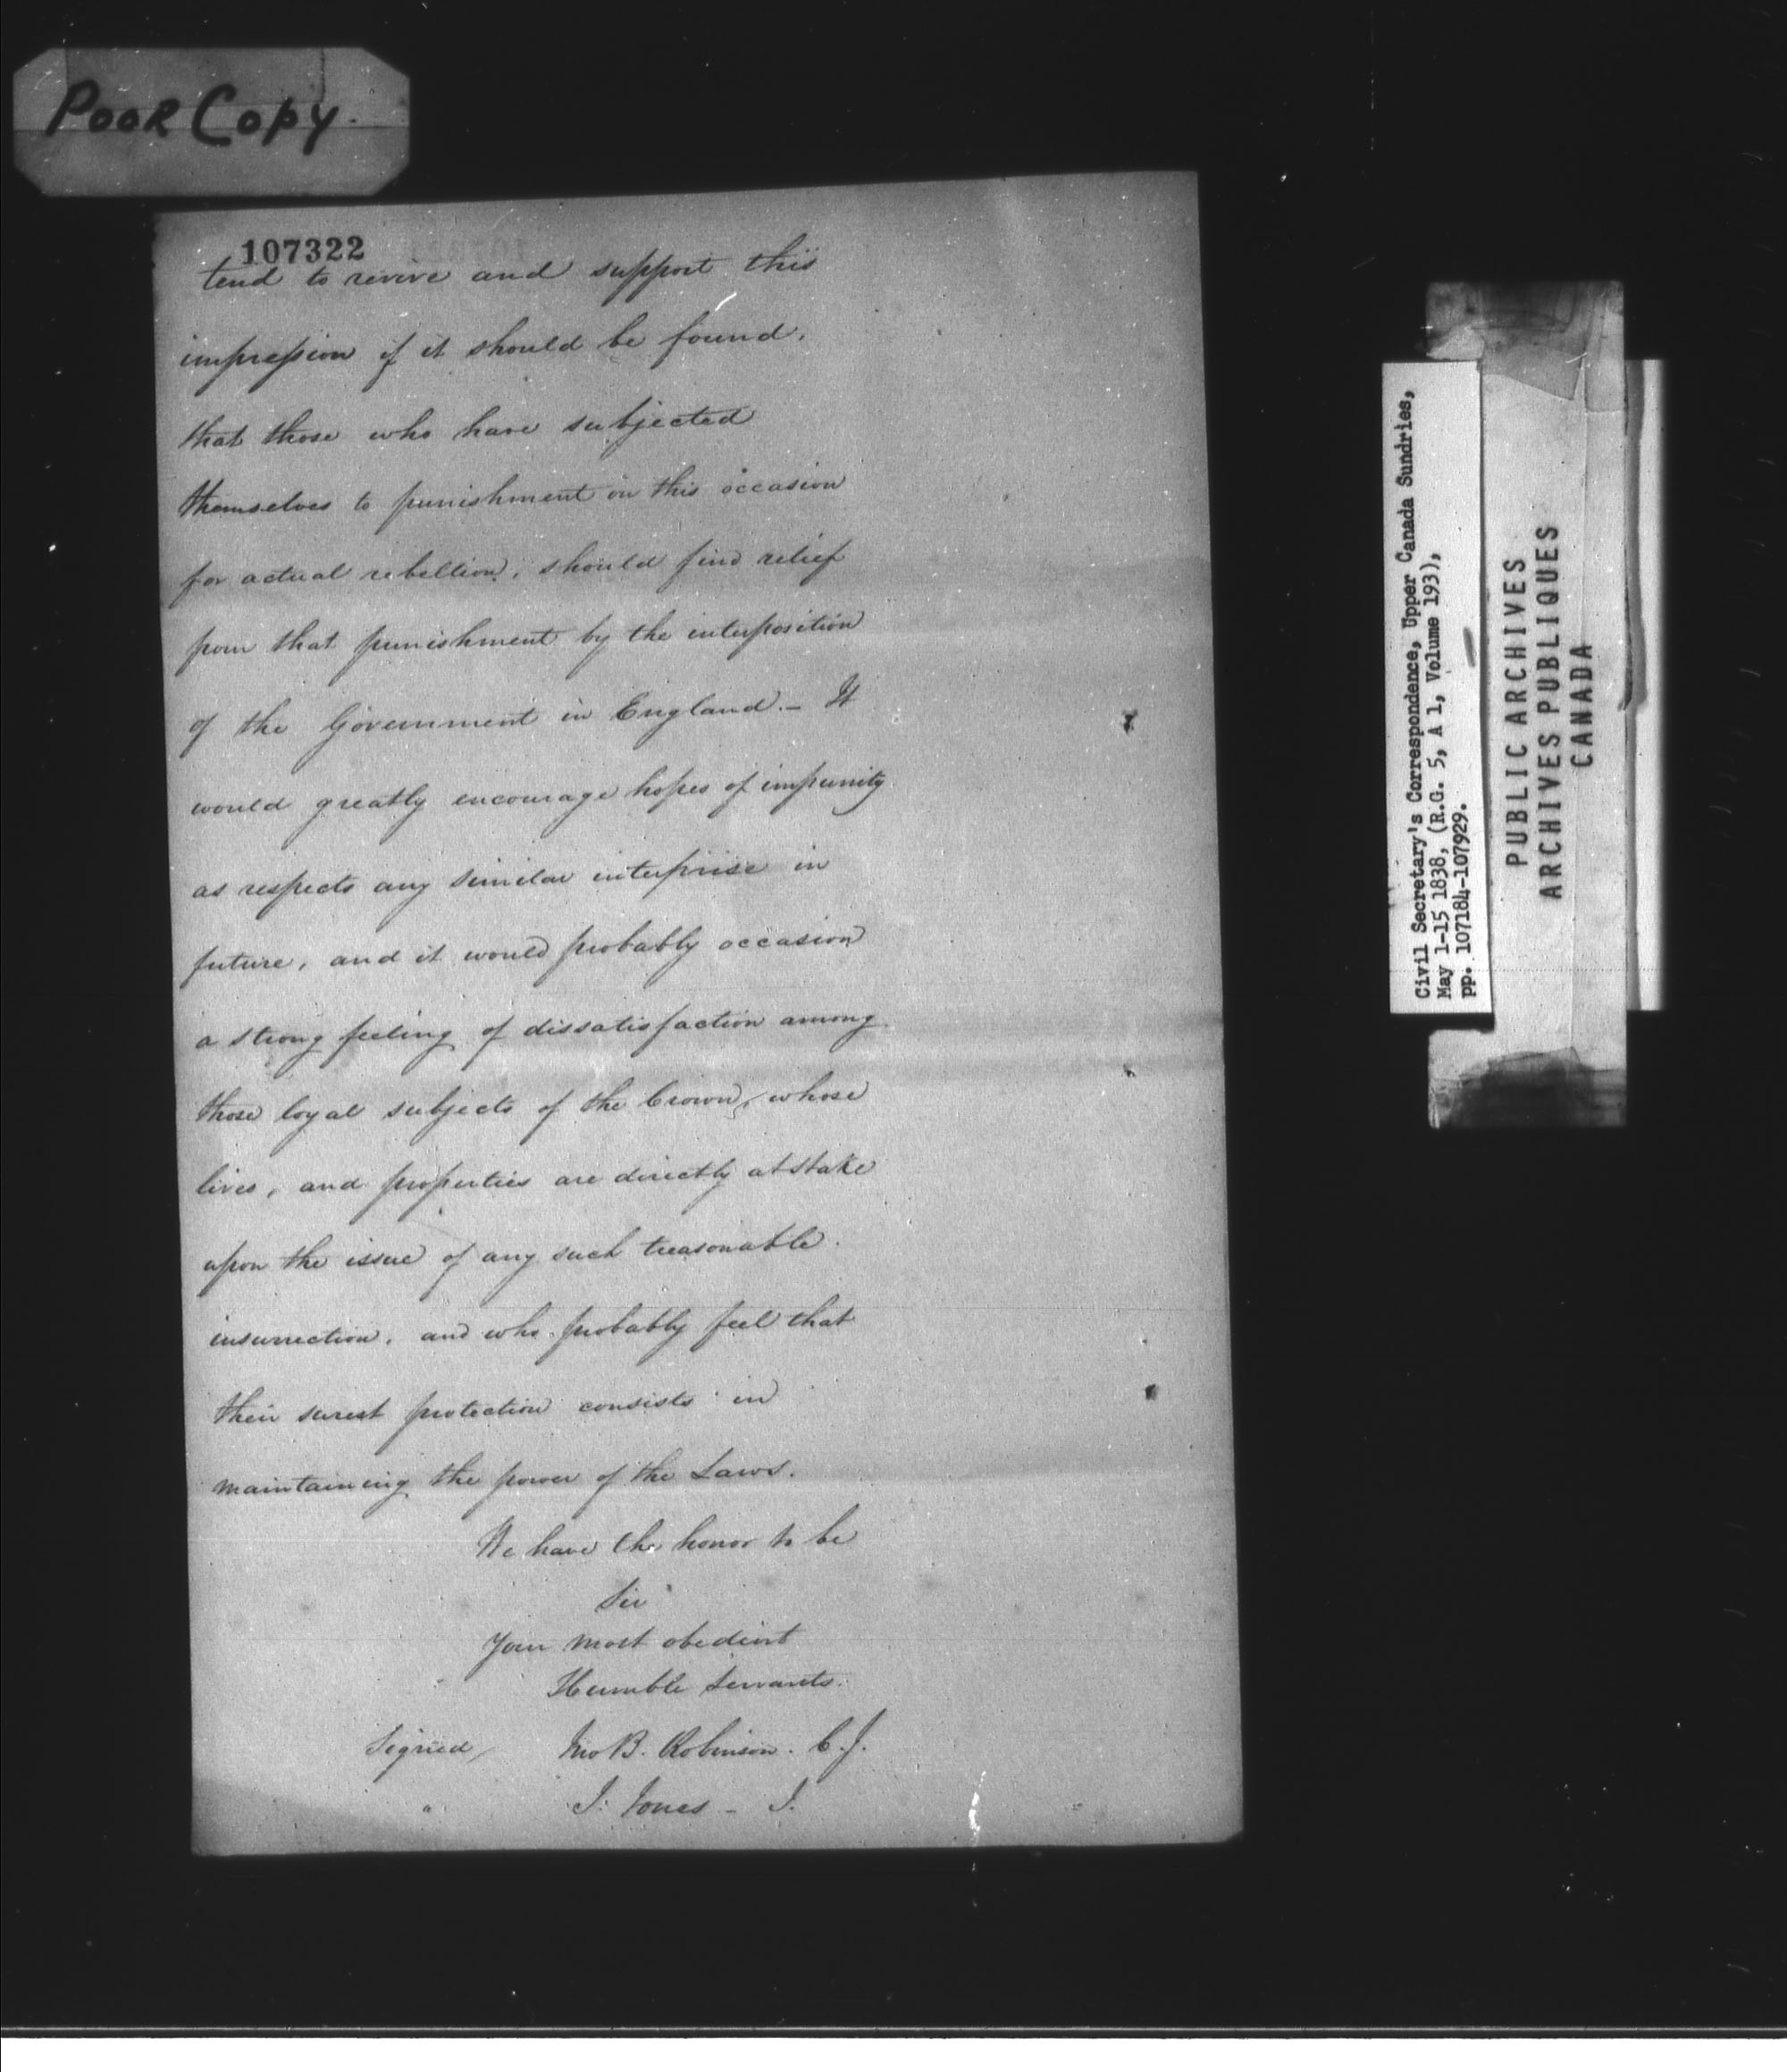 POOR COPY.
107322
tend to revive and support this
impression if it should be found.
that those who have subjected
themselves to punishment on this occasion
for actual rebellion, should find relief
from that punishment by the interposition
of the Government in England. – It
would greatly encourage hopes of impunity
as respects any similar interprise in
future, and it would probably occasion
a strong feeling of dissatisfaction among
those loyal subjects of the Crown, whose
lives, and properties are directly at stake
upon the issue of any such treasonable.
insurrection, and who probably feel that
their surest protection consists in
maintaining the power of the Laws.
We have the honor to be
Sir
Your most obedient
Humble Servants.
Signed, Jno B. Robinson. C.J.
" J. Jones – J.
Civil Secretary's Correspondence, Upper Canada Sundries,
May 1-15 1838, (R.G. 5, A 1, Volume 193),
pp. 107184-107929.
PUBLIC ARCHIVES
ARCHIVES PUBLIQUES
CANADA